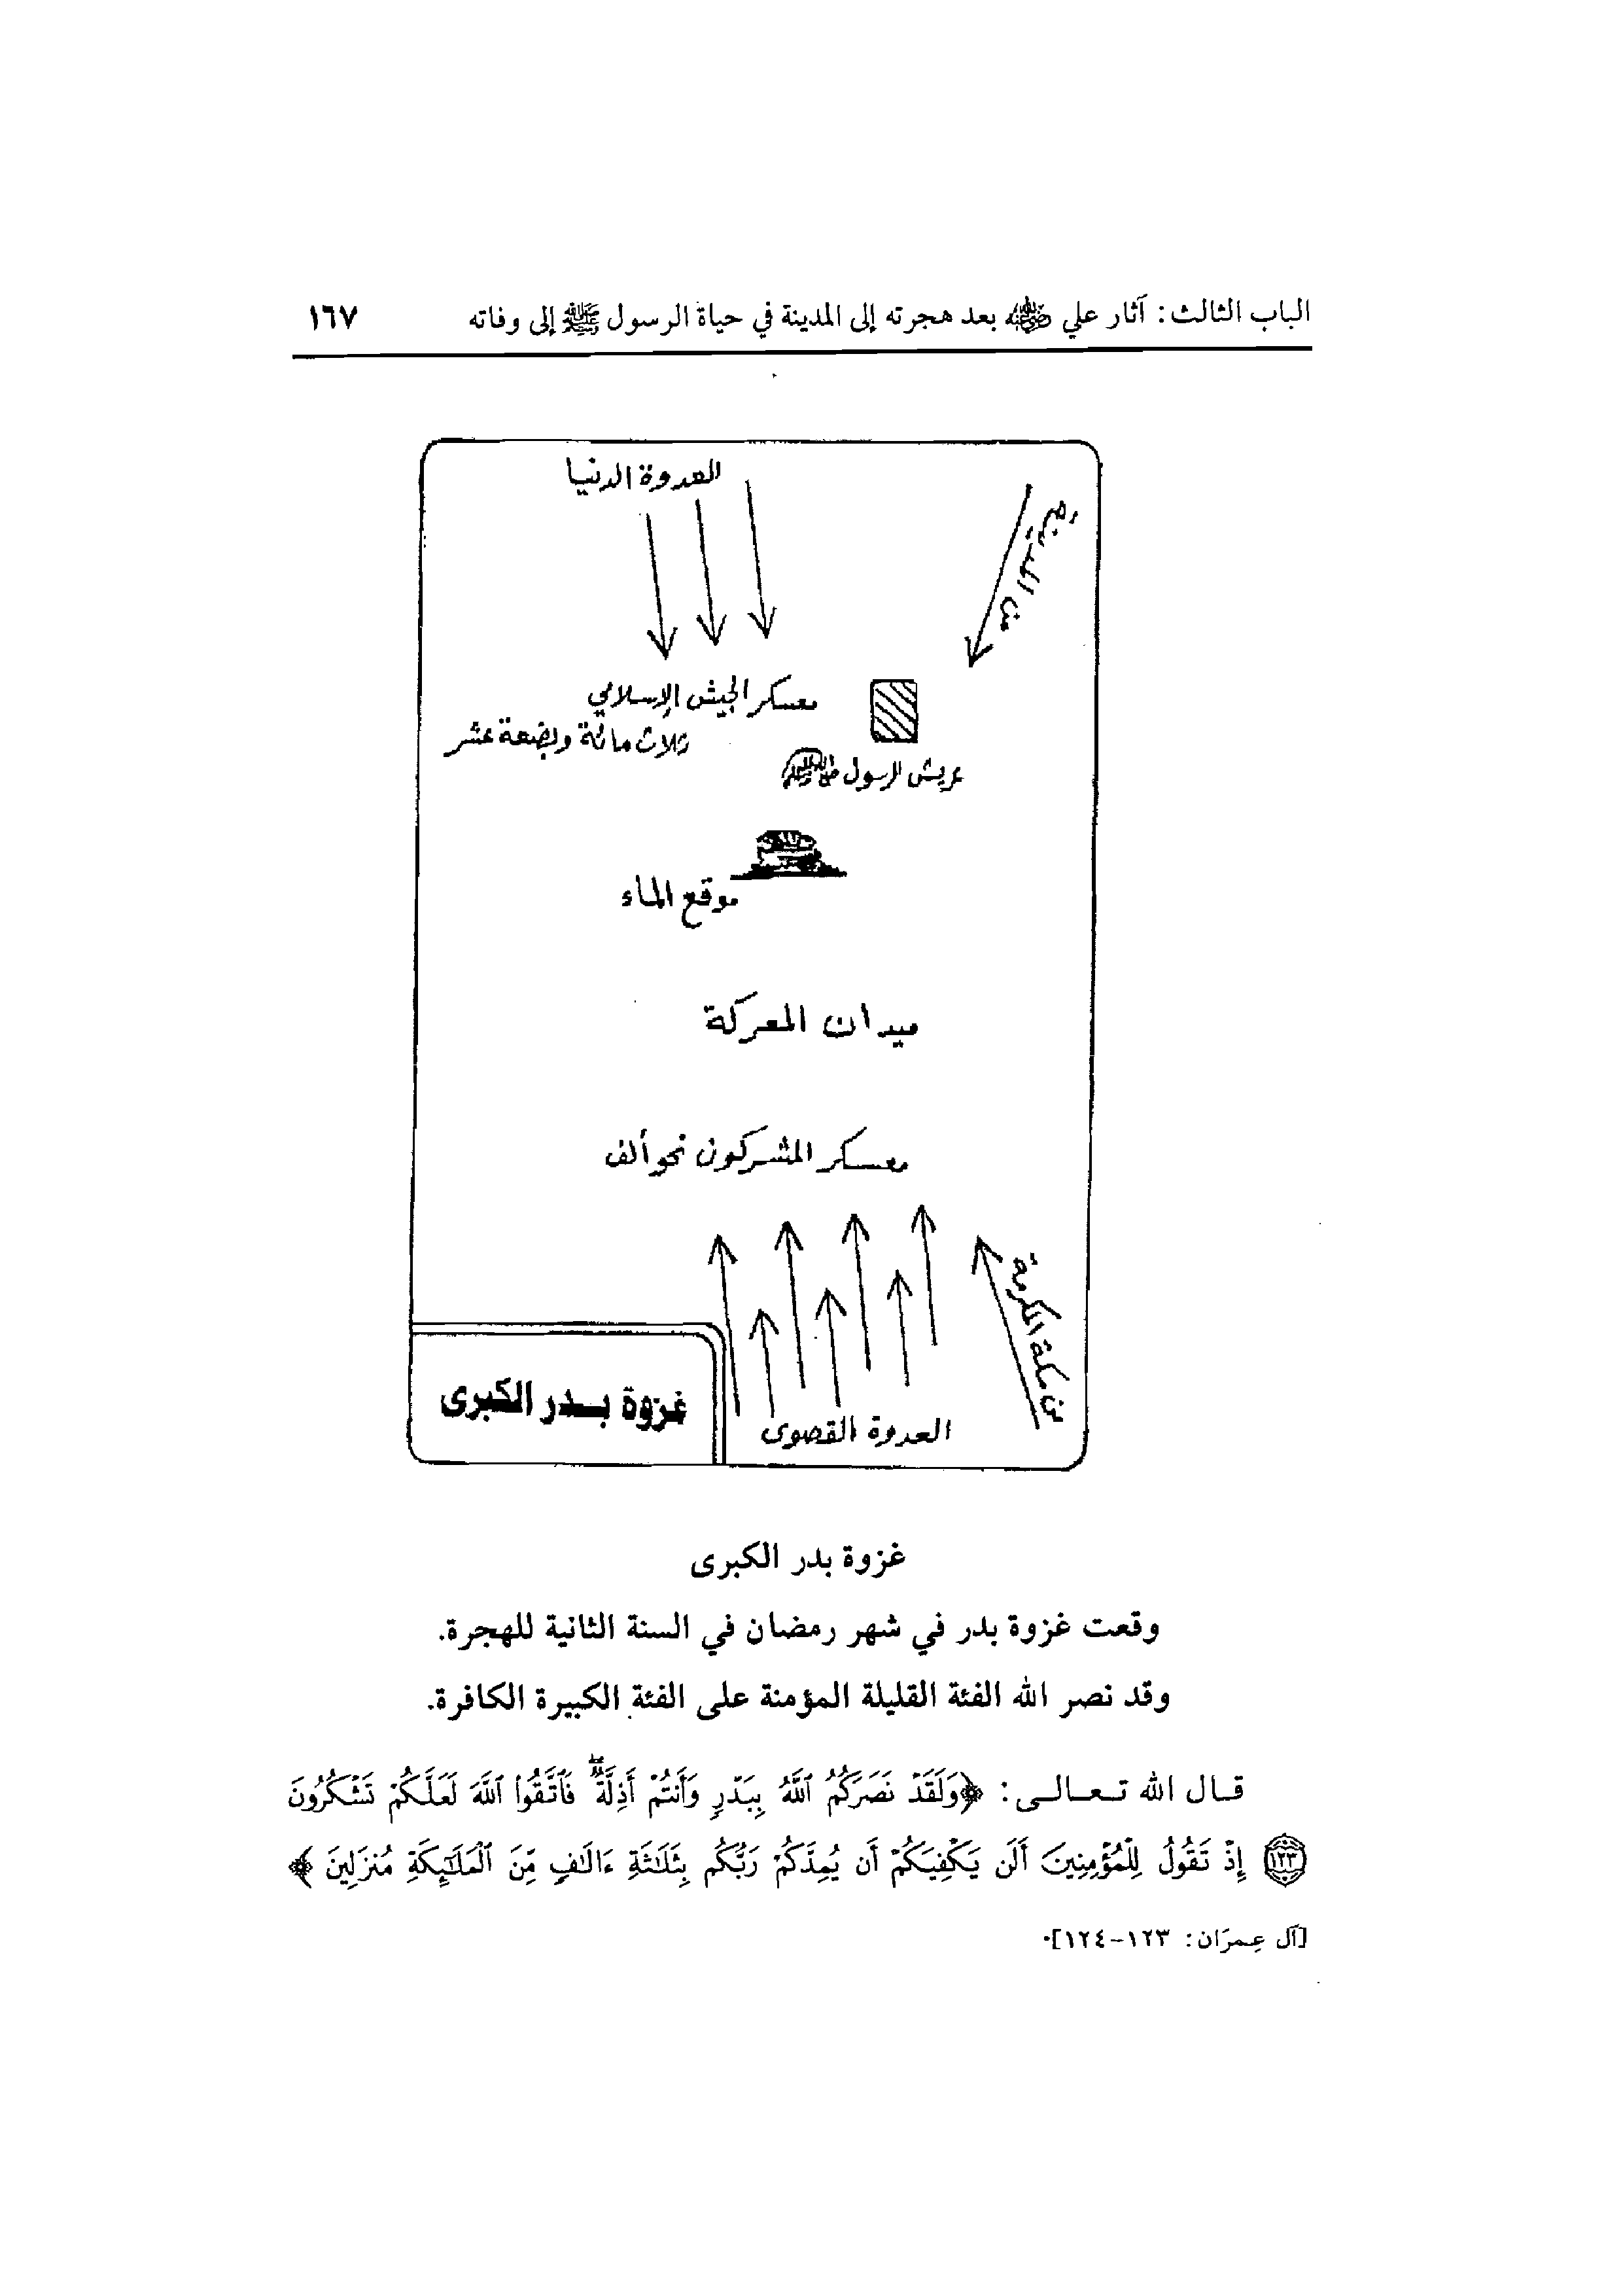 الباب الثالث: آثار علي رضي الله عنه بعد هجرته إلى المدينة في حياة الرسول ﷺ إلى وفاته ١٦٧
العدوة الدنيا
من المدينة
معسكر الجيش الإسلامي
ثلاث مائة وبضعة عشر
عريش الرسول ﷺ
موقع الماء
ميدان المعركة
معسكر المشركون نحو ألف
من مكة المكرمة
العدوة القصوى
غزوة بدر الكبرى
غزوة بدر الكبرى
وقعت غزوة بدر في شهر رمضان في السنة الثانية للهجرة.
وقد نصر الله الفئة القليلة المؤمنة على الفئة الكبيرة الكافرة.
قال الله تعالى: ﴿وَلَقَدْ نَصَرَكُمُ ٱللَّهُ بِبَدْرٍ وَأَنتُمْ أَذِلَّةٌۖ فَٱتَّقُوا۟ ٱللَّهَ لَعَلَّكُمْ تَشْكُرُونَ
١٢٣ إِذْ تَقُولُ لِلْمُؤْمِنِينَ أَلَن يَكْفِيَكُمْ أَن يُمِدَّكُمْ رَبُّكُم بِثَلَـٰثَةِ ءَالَـٰفٍ مِّنَ ٱلْمَلَـٰٓئِكَةِ مُنزَلِينَ﴾
[آل عِمرَان: ١٢٣-١٢٤].